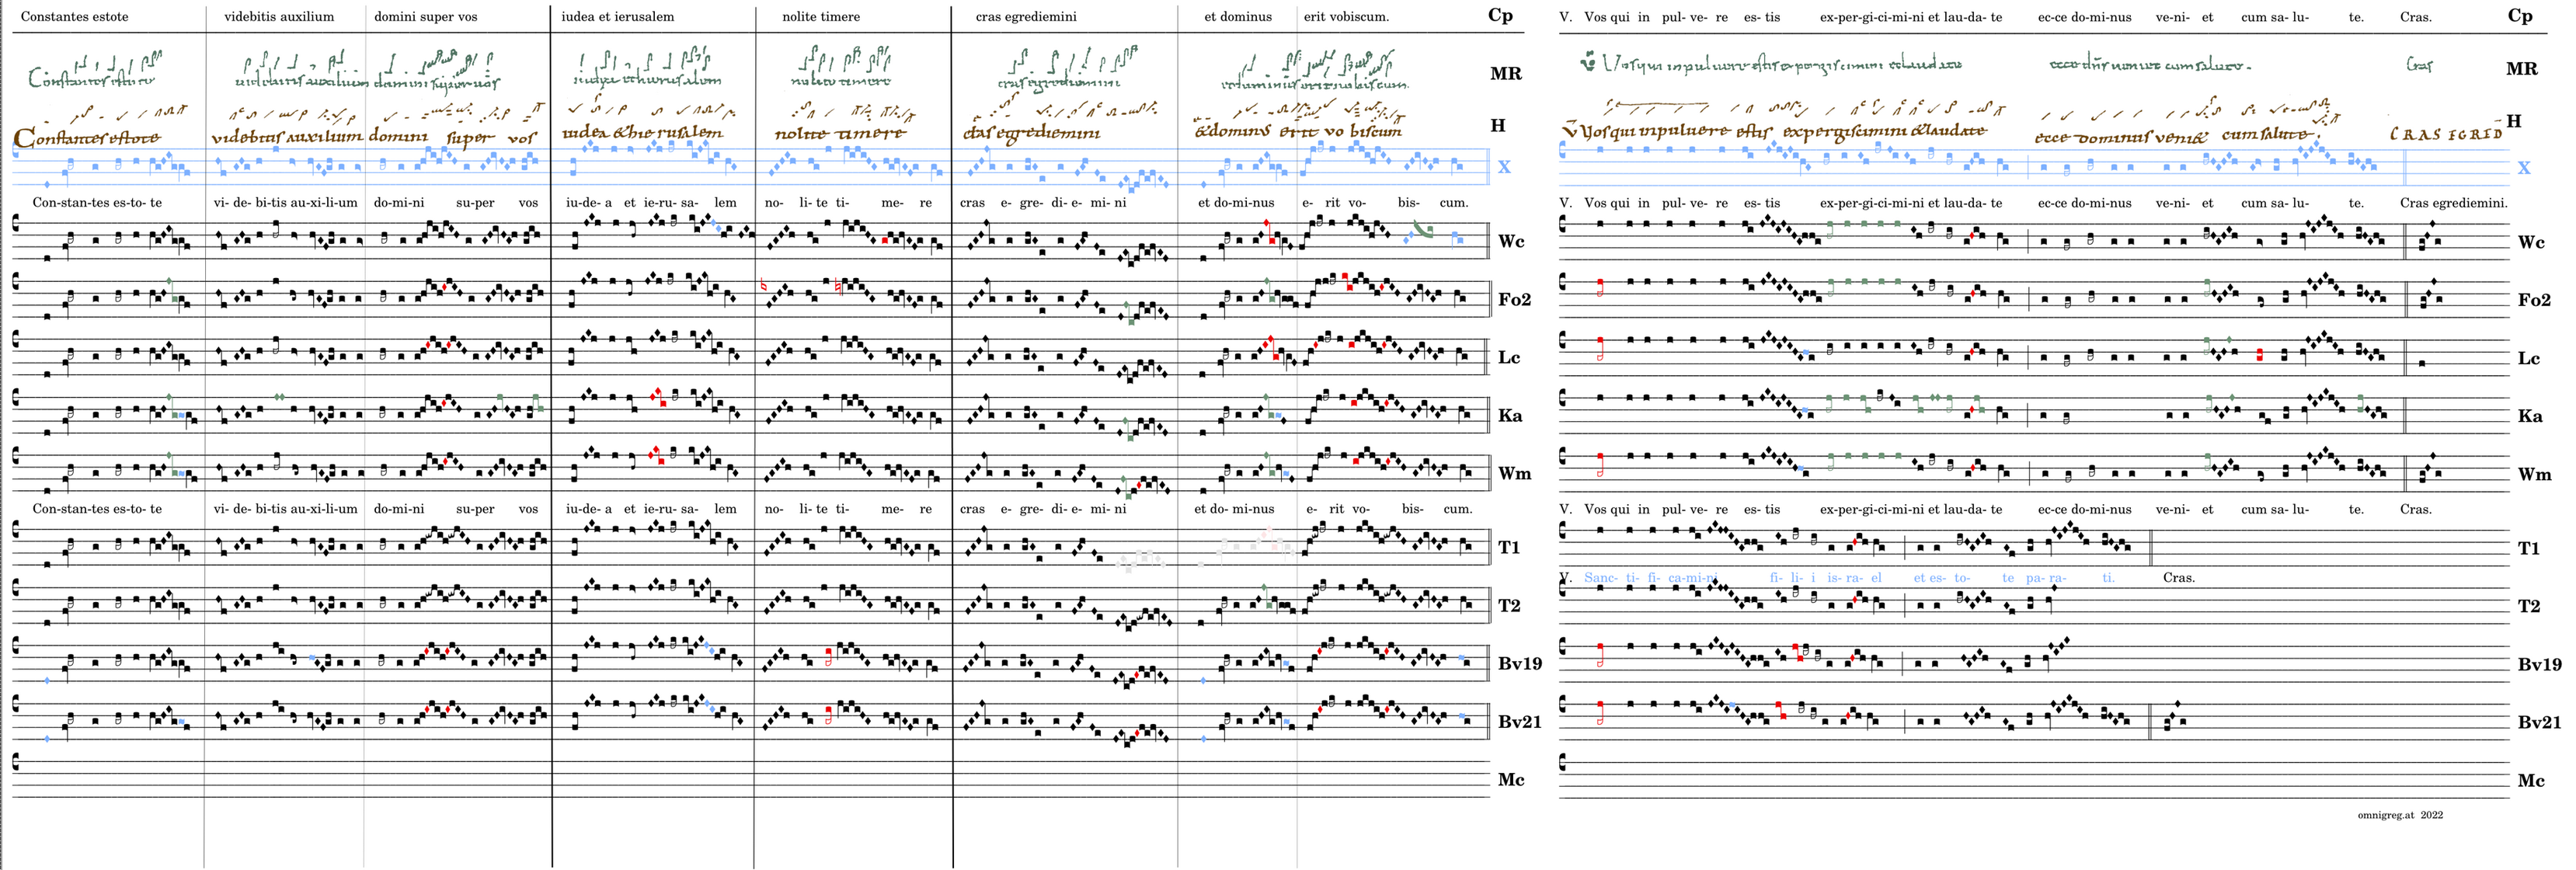 Constantes estote videbitis auxilium domini super vos iudea et ierusalem nolite timere cras egrediemini et dominus erit vobiscum. Cp
Constantes estote videbitis auxilium domini super vos iudea et hierusalem nolite timere cras egrediemini MR
Constantes estote videbitis auxilium domini super vos iudea & hierusalem nolite timere cras egrediemini & dominus erit vobiscum H
X
Con-stan-tes es-to- te vi- de- bi-tis au-xi-li-um do-mi-ni su-per vos iu-de- a et ie-ru- sa- lem no- li- te ti- me- re cras e- gre- di- e- mi- ni et do-mi-nus e- rit vo- bis- cum.
Wc
Fo2
Lc
Ka
Wm
Con-stan-tes es-to- te vi- de- bi-tis au-xi-li-um do-mi-ni su-per vos iu-de- a et ie-ru- sa- lem no- li- te ti- me- re cras e- gre- di- e- mi- ni et do- mi-nus e- rit vo- bis- cum.
T1
T2
Bv19
Bv21
Mc
V. Vos qui in pul- ve- re es- tis ex-per-gi-ci-mi-ni et lau-da- te ec-ce do-mi-nus ve-ni- et cum sa- lu- te. Cras. Cp
Vos qui in pulvere estis expergiscimini et laudate Cras MR
V Vos qui in pulvere estis expergiscimini & laudate ecce dominus veni& cum salute. CRAS EGRED H
X
V. Vos qui in pul- ve- re es- tis ex-per-gi-ci-mi-ni et lau-da- te ec-ce do-mi-nus ve-ni- et cum sa- lu- te. Cras egrediemini.
Wc
Fo2
Lc
Ka
Wm
V. Vos qui in pul- ve- re es- tis ex-per-gi-ci-mi-ni et lau-da- te ec-ce do-mi-nus ve-ni- et cum sa- lu- te. Cras.
T1
V. Sanc- ti- fi- ca-mi-ni fi- li- i is- ra- el et es- to- te pa- ra- ti. Cras.
T2
Bv19
Bv21
Mc
omnigreg.at 2022